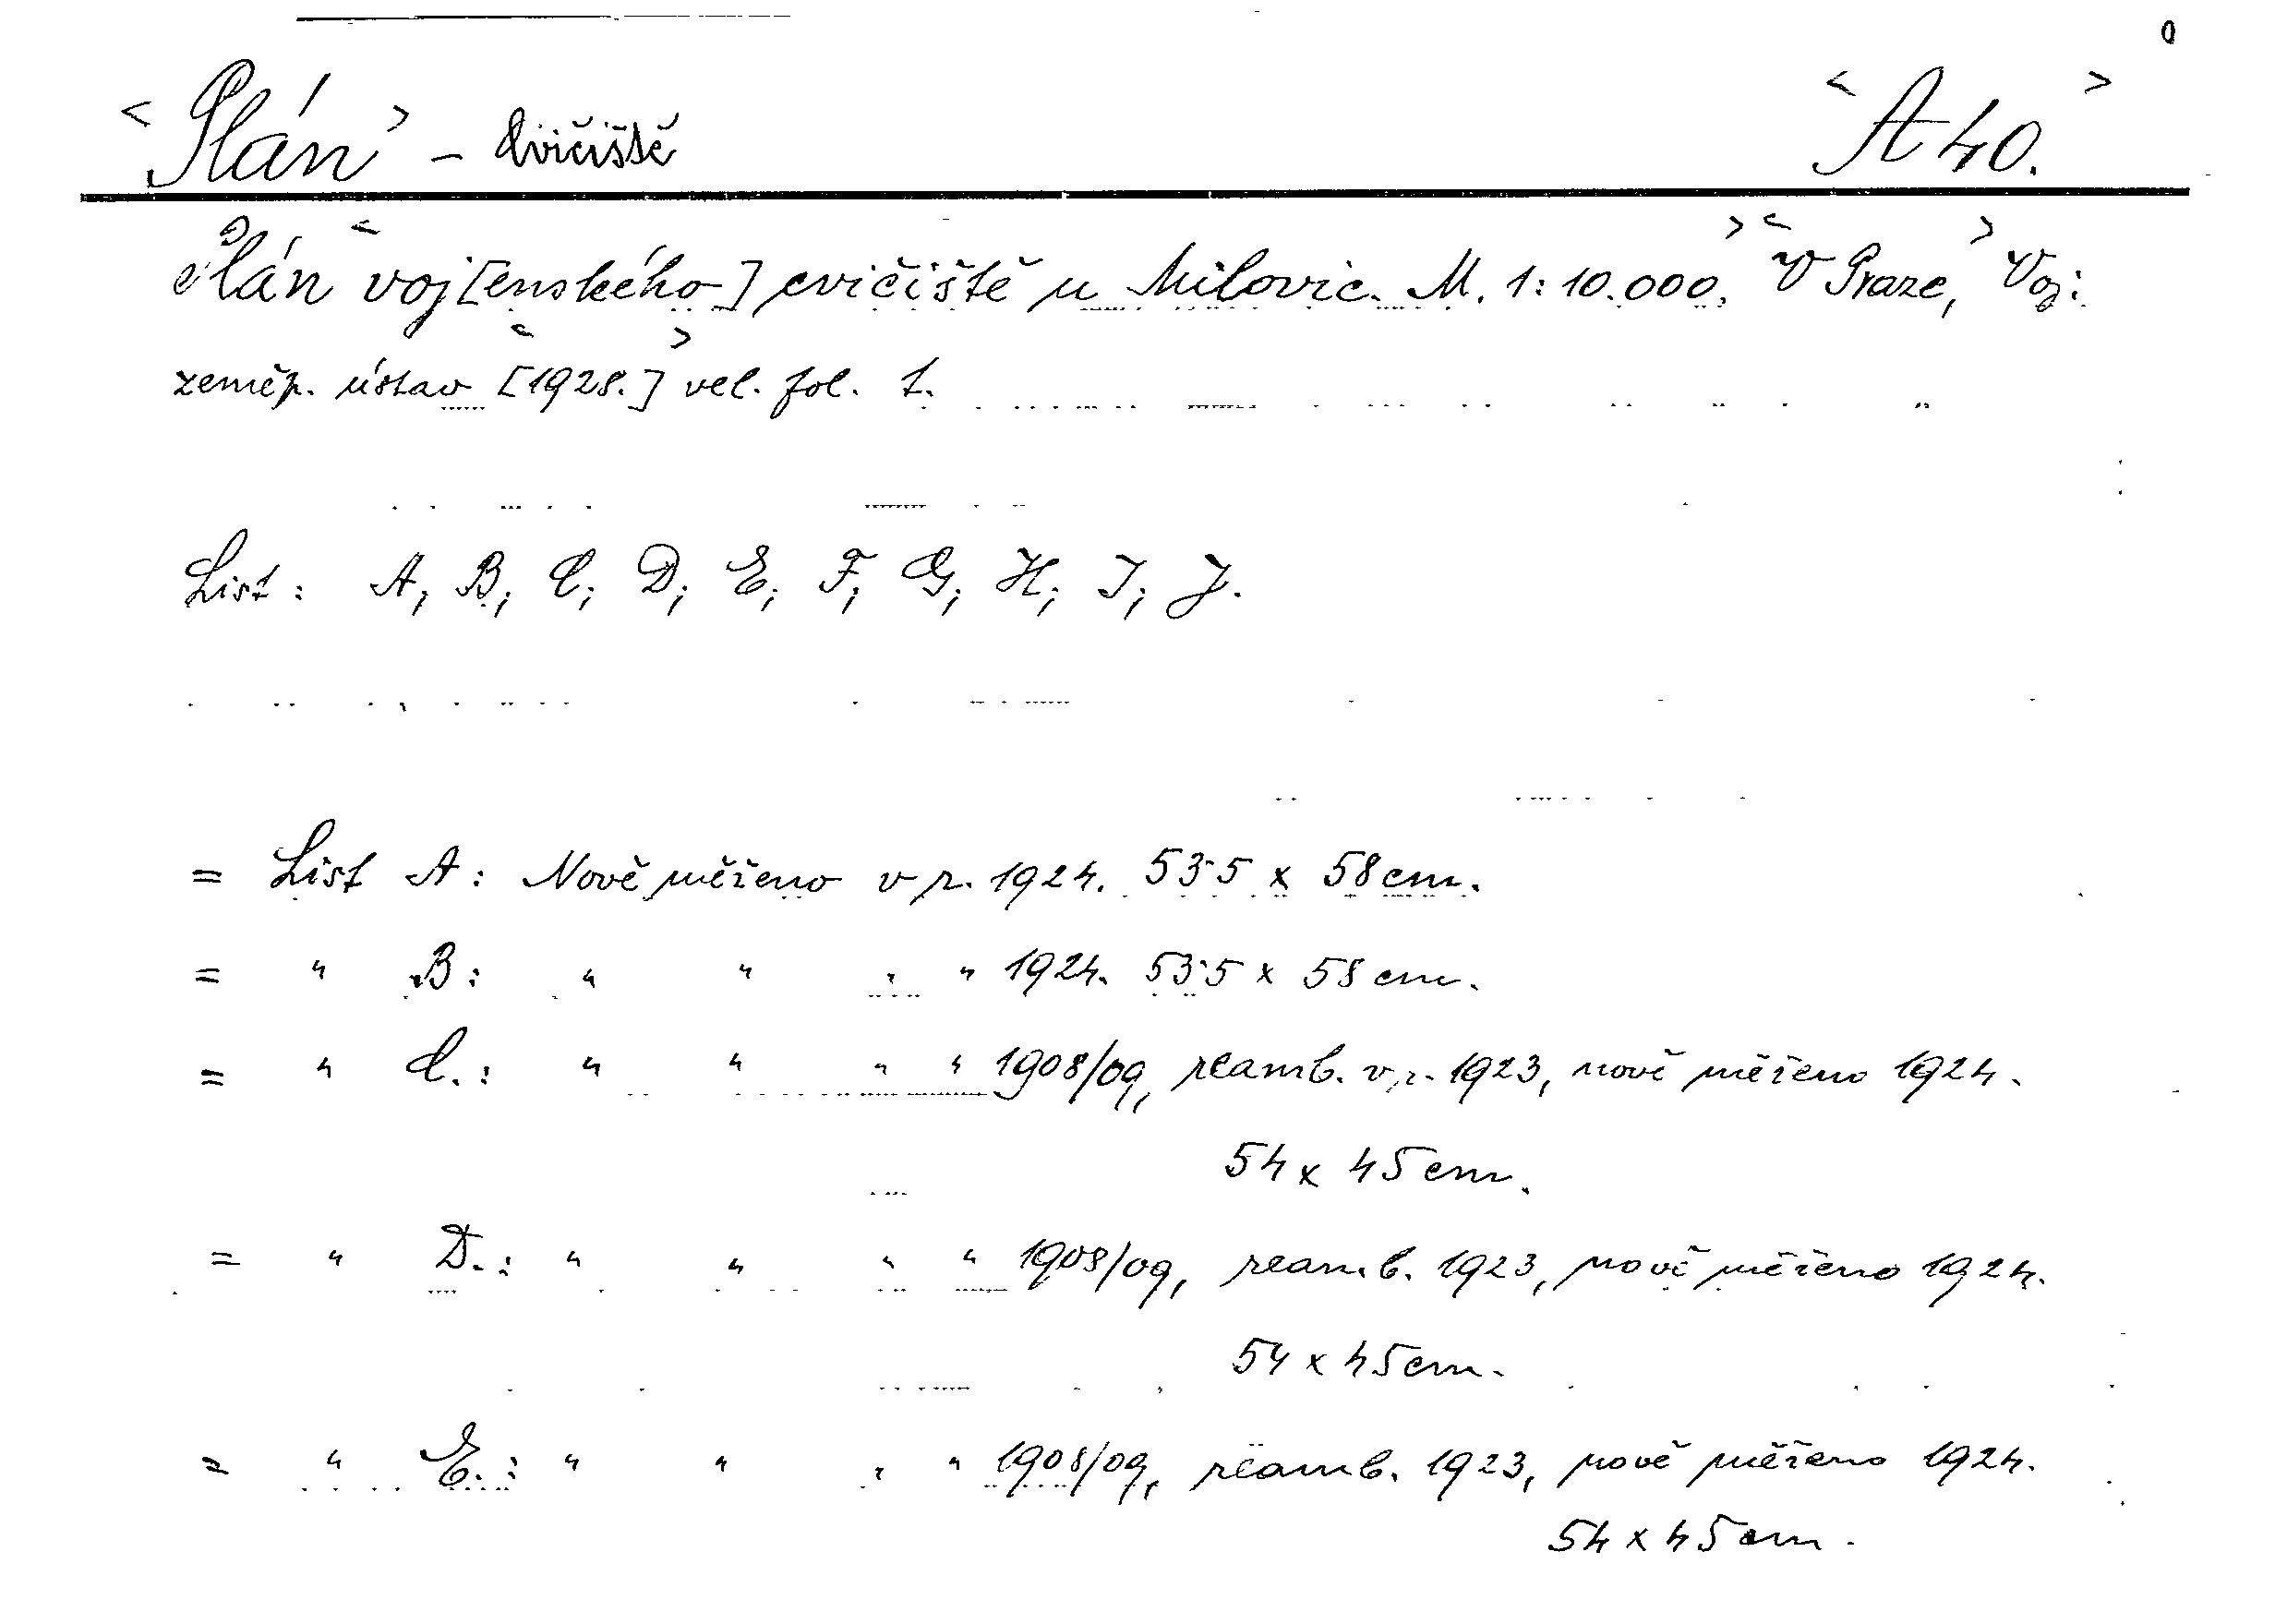 <Plán> – cvičiště <A 40.>
Plán <voj[enského] cvičiště u Milovic. M. 1:10.000,> <V Praze,> Voj:
zeměp. ústav <[1928.]> vel. fol. 1.
List: A, B, C, D, E, F, G, H, I, J.
= List A: Nově měřeno v r. 1924. 53·5 x 58 cm.
= " B: " " " " 1924. 53·5 x 58 cm.
= " C.: " " " " 1908/09, reamb. v r. 1923, nově měřeno 1924.
54 x 45 cm.
= " D.: " " " " 1908/09, reamb. 1923, nově měřeno 1924.
54 x 45 cm.
= " E.: " " " " 1908/09, reamb. 1923, nově měřeno 1924.
54 x 45 cm.